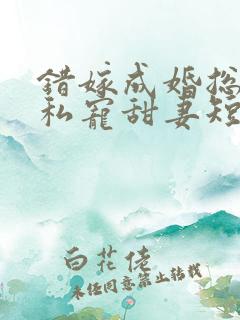 错嫁成婚总
私宠甜妻短
白花佬
未经同意禁止转载